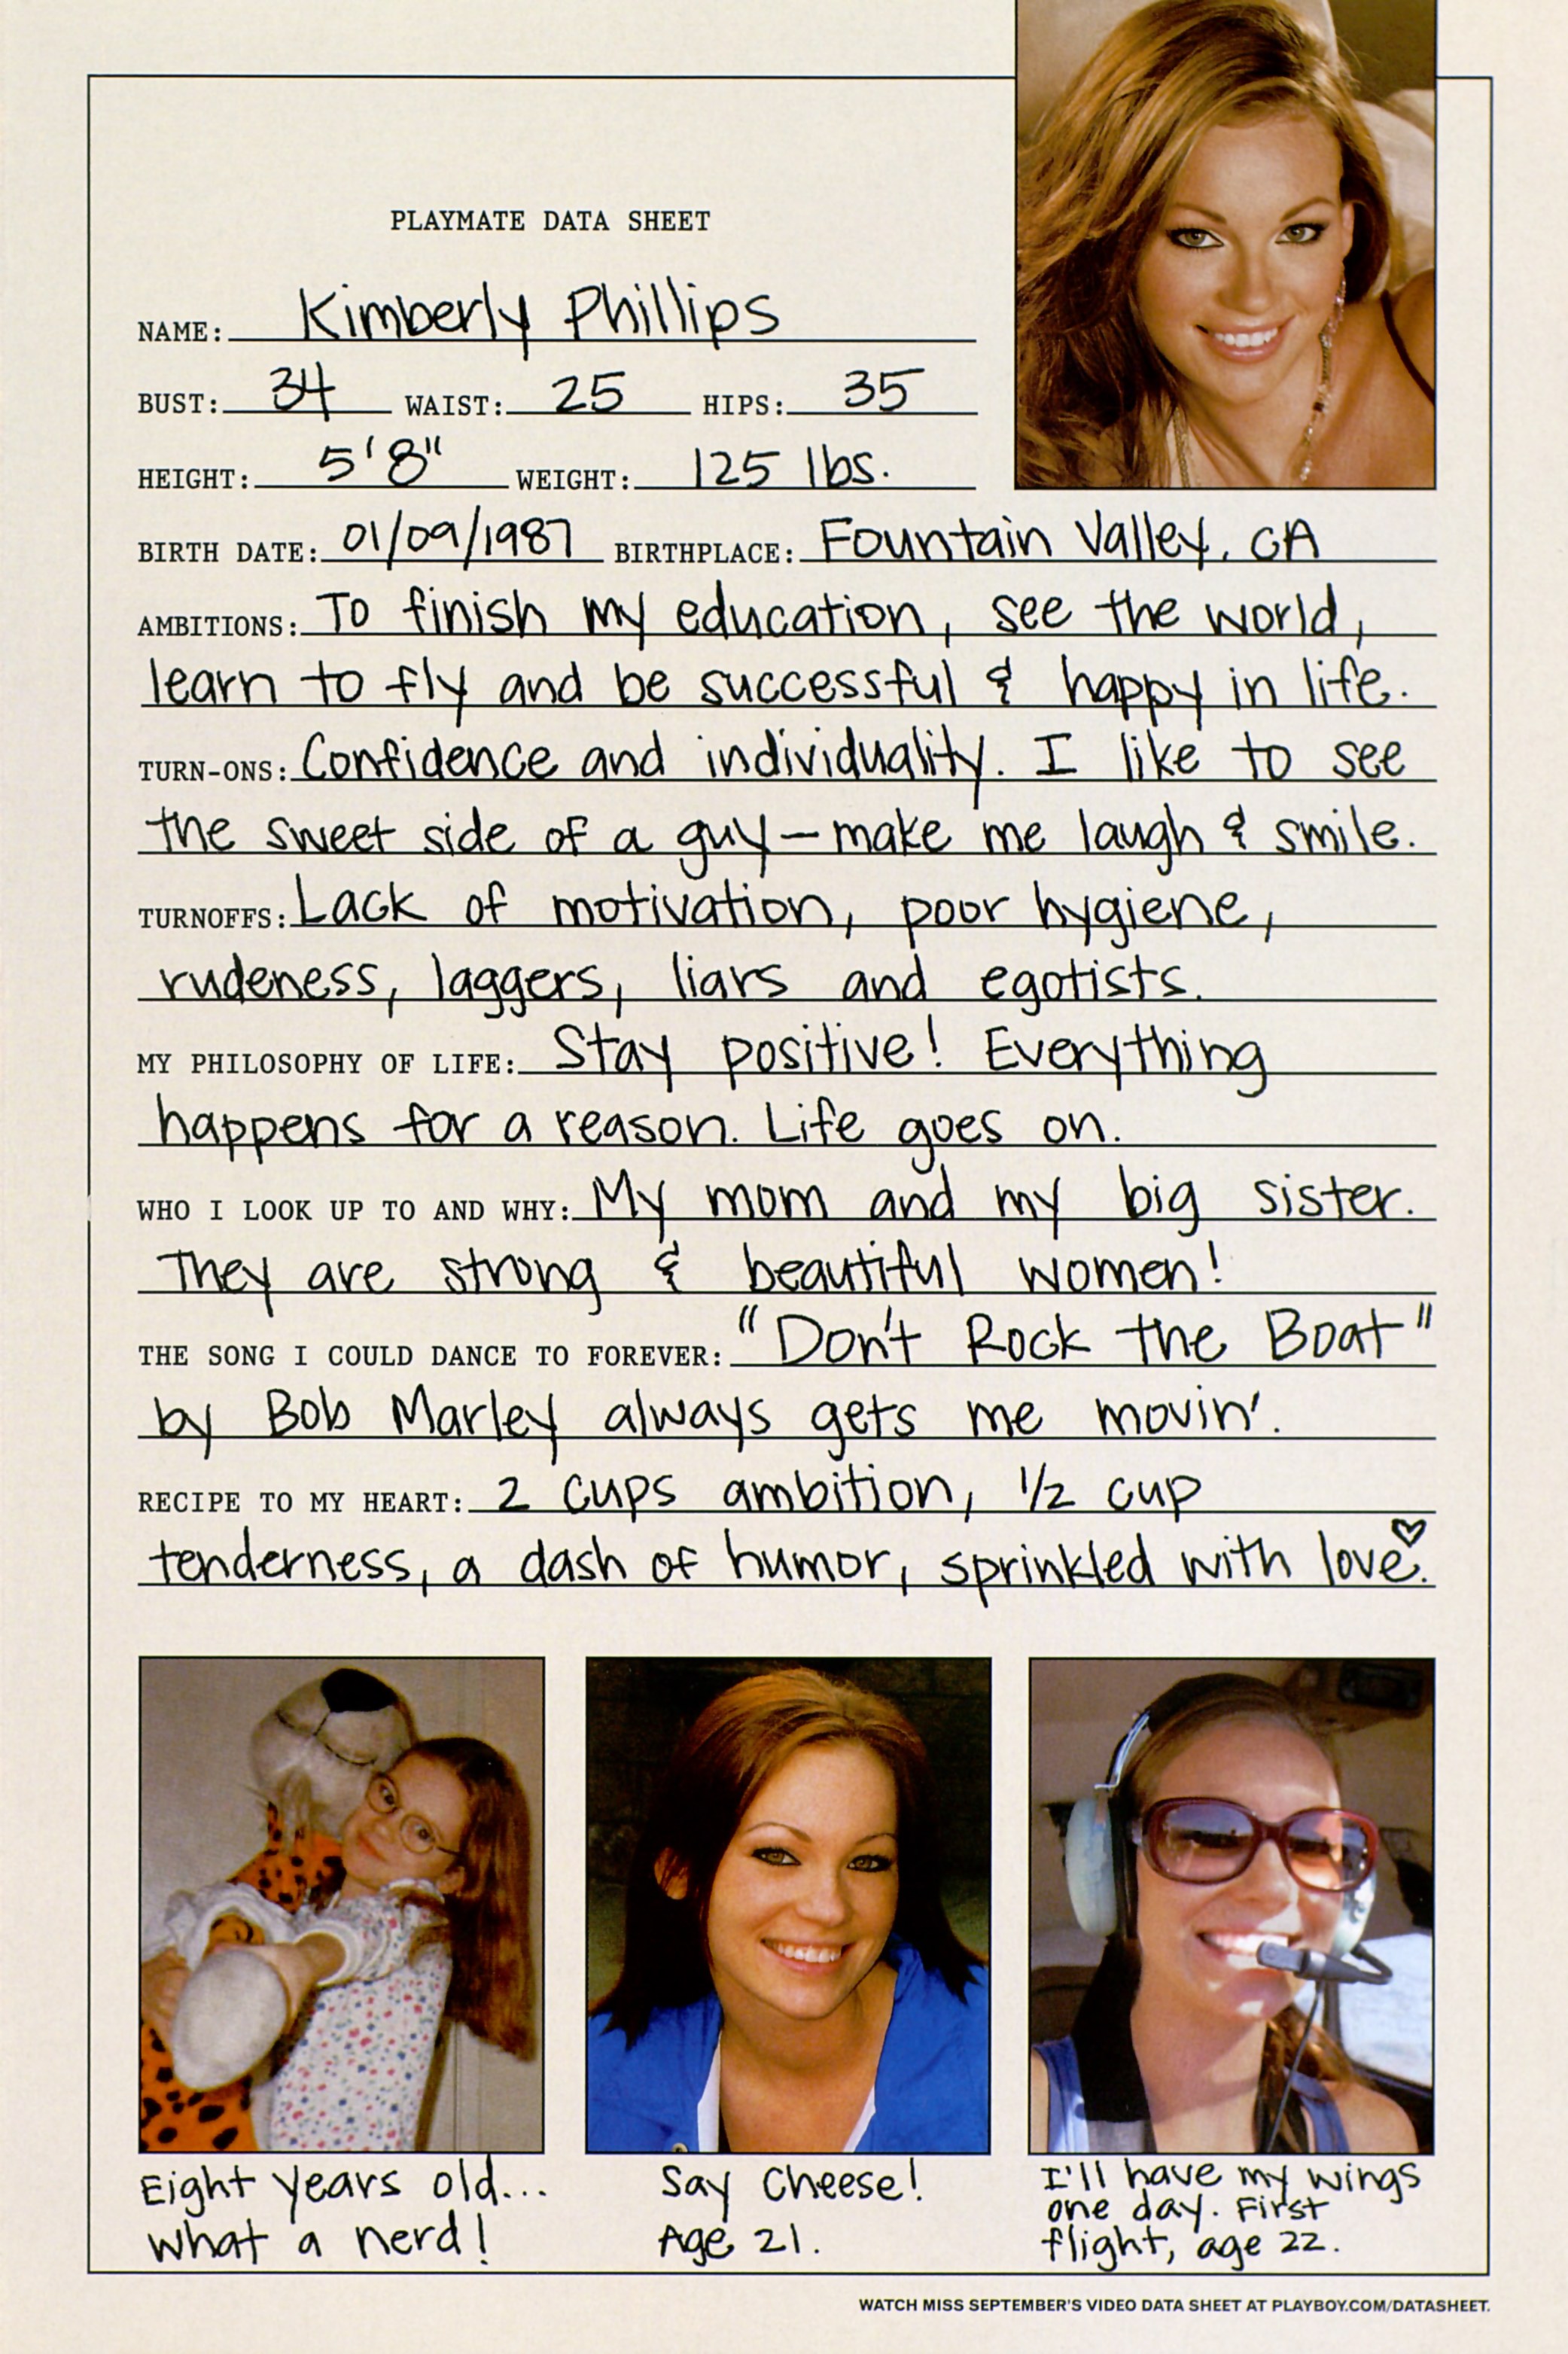 PLAYMATE DATA SHEET
NAME: Kimberly Phillips
BUST: 34 WAIST: 25 HIPS: 35
HEIGHT: 5'8" WEIGHT: 125 lbs.
BIRTH DATE: 01/09/1987 BIRTHPLACE: Fountain Valley, CA
AMBITIONS: To finish my education, see the world,
learn to fly and be successful & happy in life.
TURN-ONS: Confidence and individuality. I like to see
the sweet side of a guy—make me laugh & smile.
TURNOFFS: Lack of motivation, poor hygiene,
rudeness, laggers, liars and egotists.
MY PHILOSOPHY OF LIFE: Stay positive! Everything
happens for a reason. Life goes on.
WHO I LOOK UP TO AND WHY: My mom and my big sister.
They are strong & beautiful women!
THE SONG I COULD DANCE TO FOREVER: "Don't Rock the Boat"
by Bob Marley always gets me movin'.
RECIPE TO MY HEART: 2 cups ambition, 1/2 cup
tenderness, a dash of humor, sprinkled with love.
Eight years old...
what a nerd!
Say Cheese!
Age 21.
I'll have my wings
one day. First
flight, age 22.
WATCH MISS SEPTEMBER'S VIDEO DATA SHEET AT PLAYBOY.COM/DATASHEET.